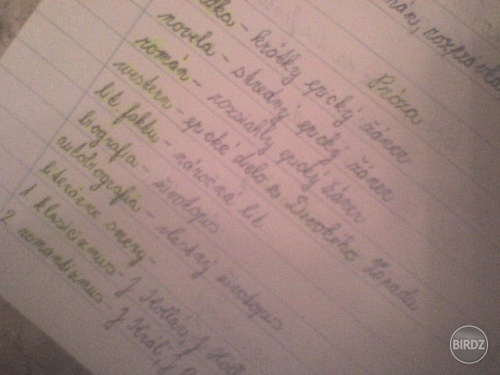 Próza
– krátky epický žáner
novela – stredný epický žáner
román – rozsiahly epický žáner
western – epické dielo z Divokého Západu
lit. faktu – náročná lit.
biografia – životopis
autobiografia – vlastný životopis
literárne smery –
1 klasicizmus – J Hollár, J
2. romantizmus – J Kráľ,
BIRDZ